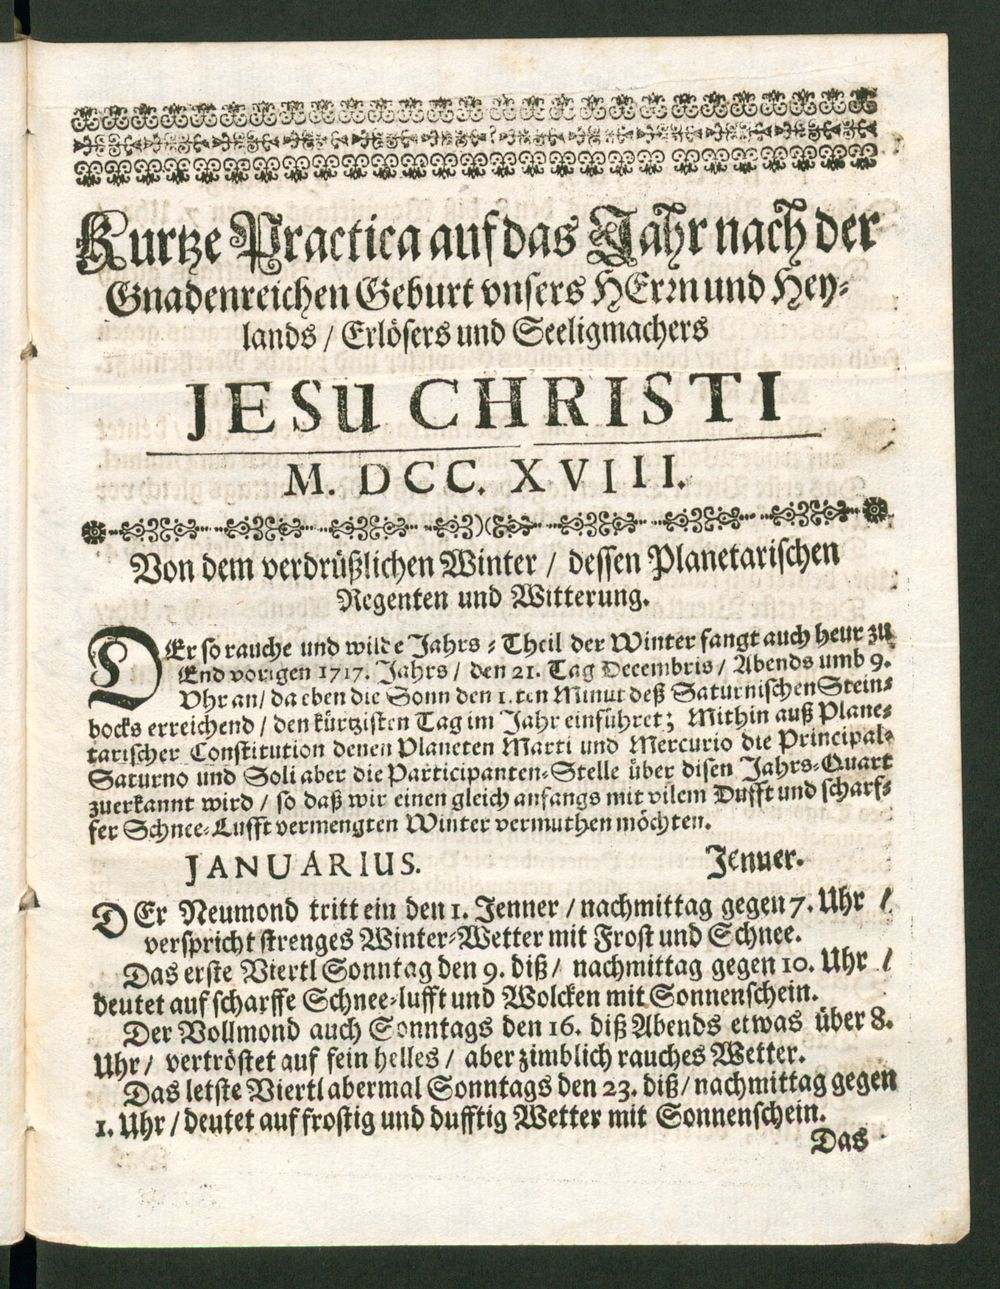 Kurtze Practica auf das Jahr nach der
Gnadenreichen Geburt vnsers HErrn und Hey-
lands / Erlösers und Seeligmachers
JESU CHRISTI
M. DCC. XVIII.
Von dem verdrüßlichen Winter / dessen Planetarischen
Regenten und Witterung.
DEr so rauche und wilde Jahrs-Theil der Winter fangt auch heur zu
End vorigen 1717. Jahrs / den 21. Tag Decembris / Abends umb 9.
Vhr an / da eben die Sonn den 1.ten Minut deß Saturnischen Stein-
bocks erreichend / den kürtzisten Tag im Jahr einführet; Mithin auß Plane-
tarischer Constitution denen Planeten Marti und Mercurio die Principal-
Saturno und Soli aber die Participanten-Stelle über disen Jahrs-Quart
zuerkannt wird / so daß wir einen gleich anfangs mit vilem Dufft und scharf-
fer Schnee-Lufft vermengten Winter vermuthen möchten.
JANUARIUS. Jenner.
DEr Neumond tritt ein den 1. Jenner / nachmittag gegen 7. Uhr /
verspricht strenges Winter-Wetter mit Frost und Schnee.
Das erste Viertl Sonntag den 9. diß / nachmittag gegen 10. Uhr /
deutet auf scharffe Schnee-lufft und Wolcken mit Sonnenschein.
Der Vollmond auch Sonntags den 16. diß Abends etwas über 8.
Uhr / vertröstet auf fein helles / aber zimblich rauches Wetter.
Das letste Viertl abermal Sonntags den 23. diß / nachmittag gegen
1. Uhr / deutet auf frostig und dufftig Wetter mit Sonnenschein.
Das